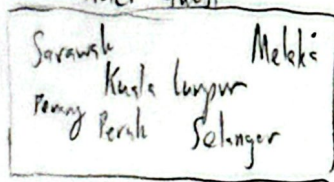 Sarawak Melaka
Kuala lumpur
Penang
Perak Selangor